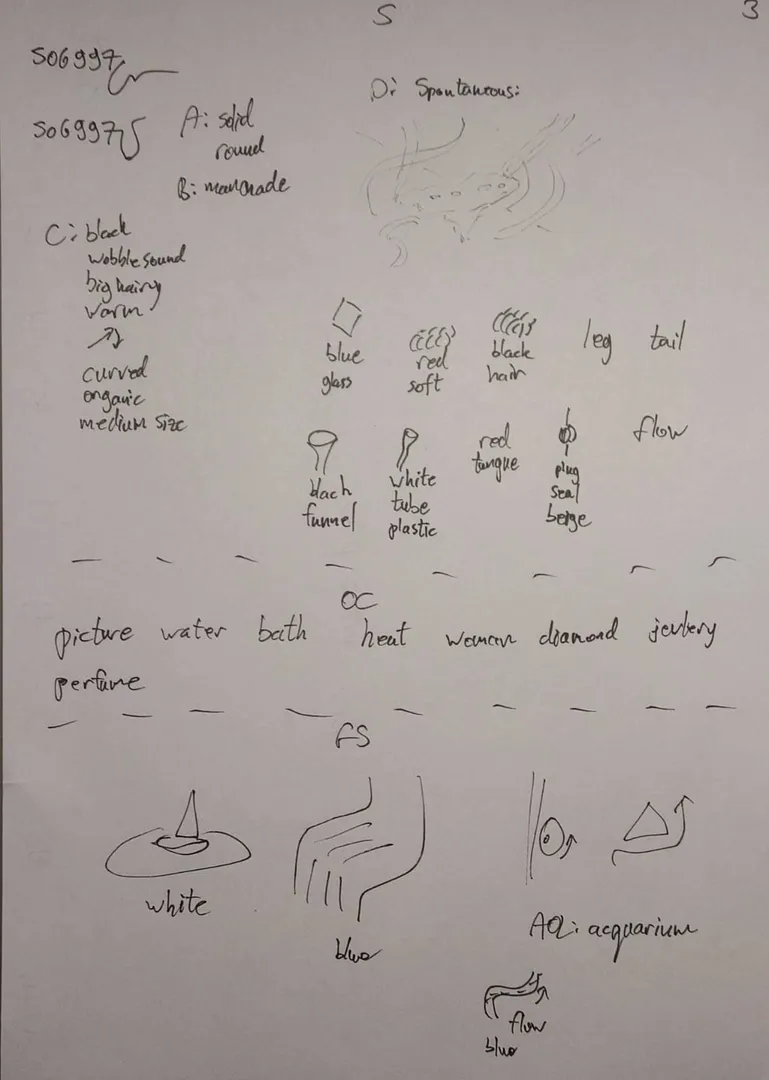 S
3
SO6997
SO6997
A: solid
round
B: manmade
C: black
wobble sound
big hairy
warm
curved
organic
medium size
D: Spontaneous:
blue
glass
red
soft
black
hair
leg
tail
blach
funnel
white
tube
plastic
red
tangue
plug
seal
beige
flow
OC
picture water bath heat woman diamond
perfume
FS
white
blue
AQ: acquarium
flow
blue